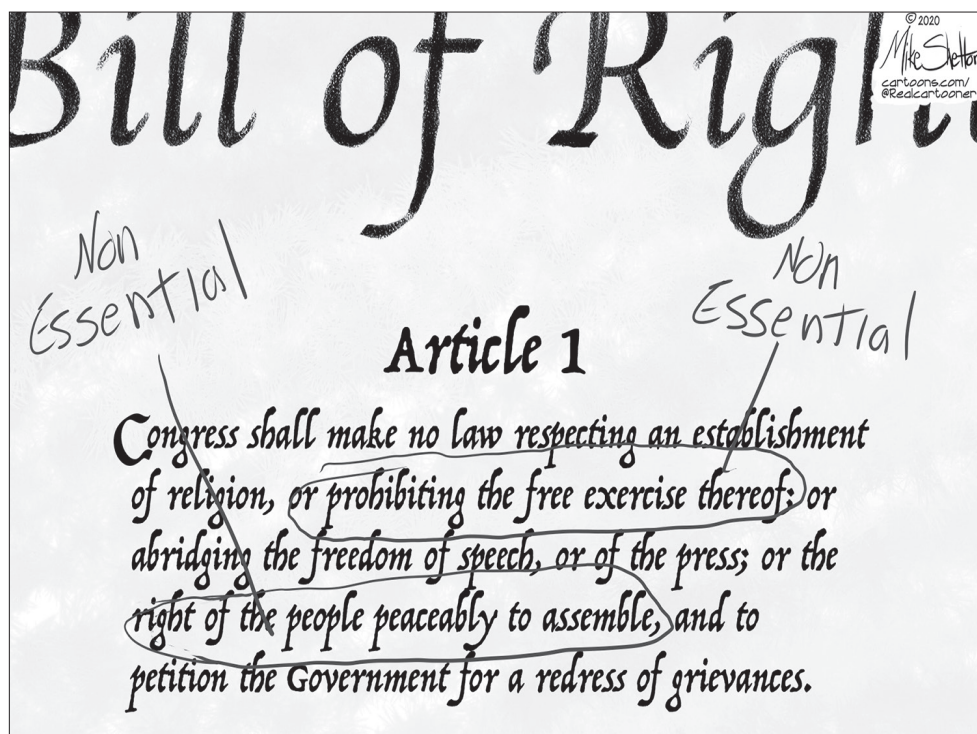 Bill of Right
© 2020
Mike Shelton
cartoons.com/
@Realcartooner
Non
Essential
Non
Essential
Article 1
Congress shall make no law respecting an establishment
of religion, or prohibiting the free exercise thereof; or
abridging the freedom of speech, or of the press; or the
right of the people peaceably to assemble, and to
petition the Government for a redress of grievances.